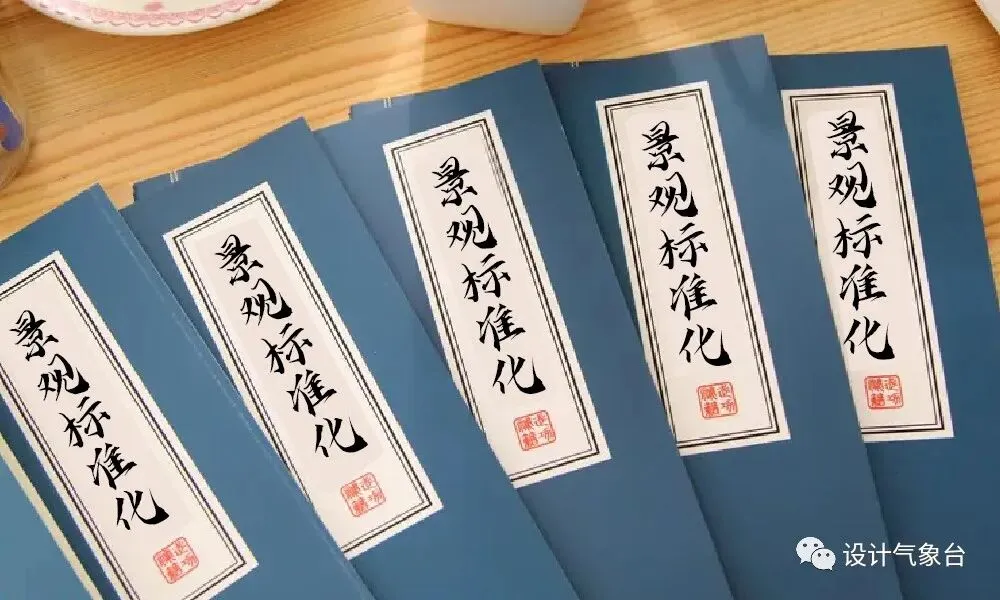 景观标准化
景观标准化
景观标准化
景观标准化
景观标准化
设计气象台